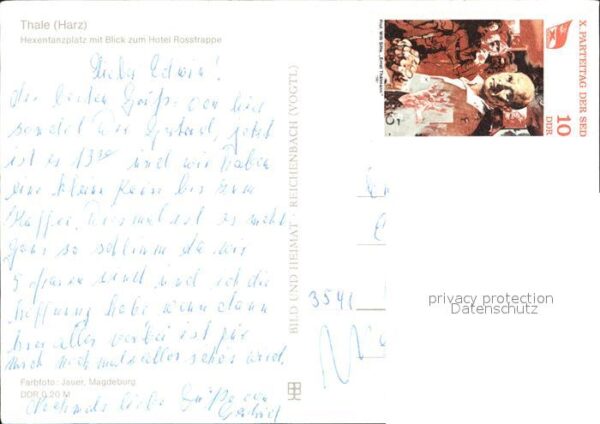 Thale (Harz)
Hexentanzplatz mit Blick zum Hotel Rosstrappe
Lieber Edwin!
Die besten Grüße von hier
sendet Dir Gertrud, jetzt
ist es 13 00 und wir haben
eine kleine Pause bis zum
Kaffee. Diesmal ist es nicht
ganz so schlimm da wir
5 sind und ich die
Hoffnung habe wenn dann
hier alles vorbei ist für
mich noch mal alles schön wird.
Farbfoto: Jauer, Magdeburg
DDR 0,20 M
Nochmals liebe Grüße von
BILD UND HEIMAT · REICHENBACH (VOGTL)
X. PARTEITAG DER SED
10
DDR
Prof. Willi Sitte, „Ernst Thälmann"
3541
privacy protection
Datenschutz